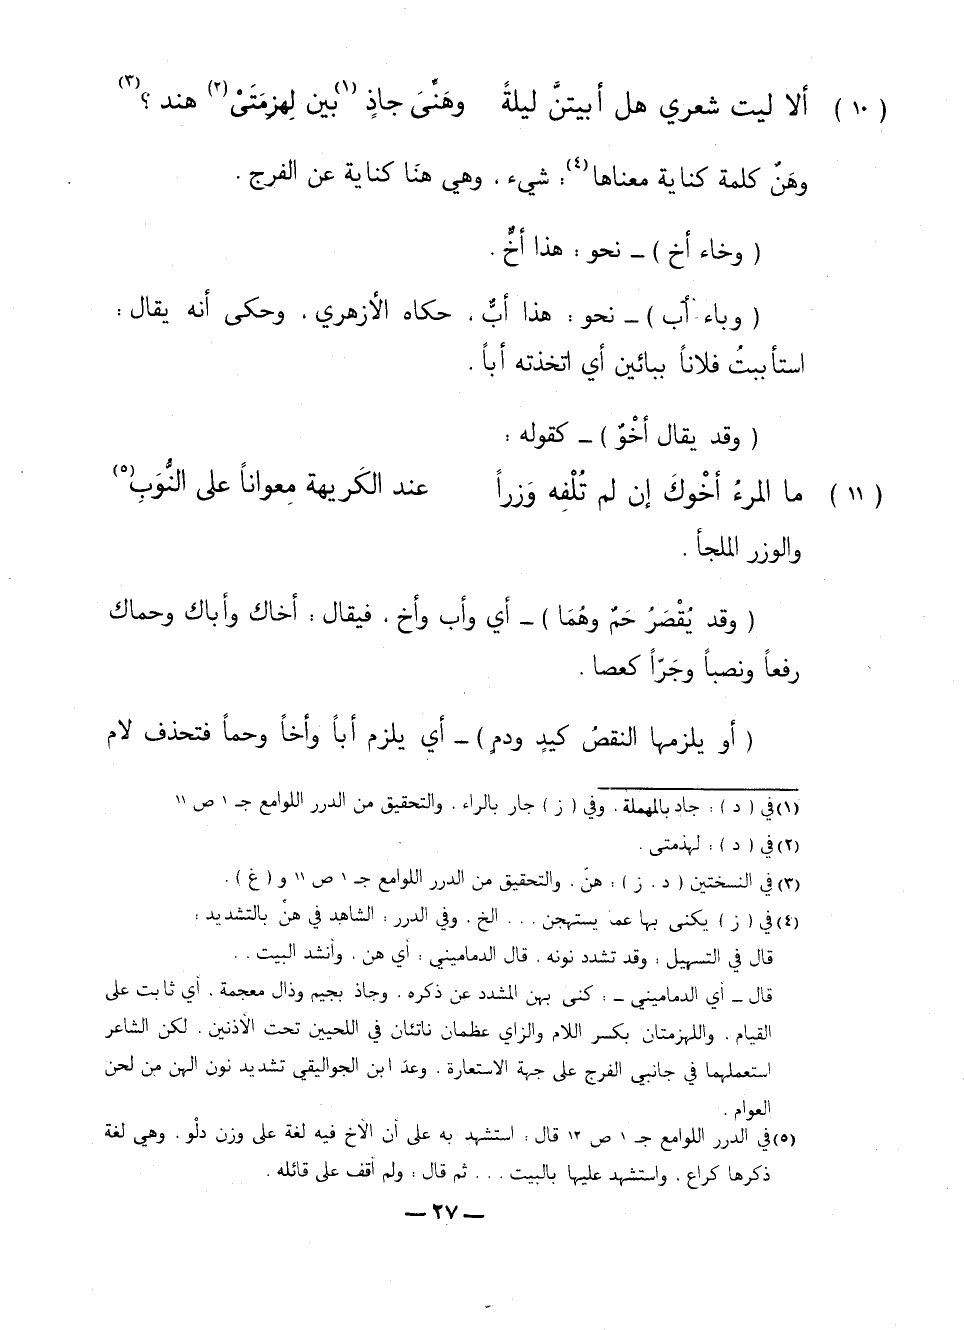 ( ١٠ ) ألا ليت شعري هل أبيتنَّ ليلةً وهَنِّىَ جاذٍ(١) بين لِهزِمَتَىْ(٢) هند ؟(٣)
وهَنٌ كلمة كناية معناها(٤) : شيء ، وهي هنَا كناية عن الفرج .
( وخاء أخ ) ــ نحو : هذا أخٌّ .
( وباء أب ) ــ نحو : هذا أبٌّ ، حكاه الأزهري ، وحكى أنه يقال :
استأببتُ فلاناً ببائين أي اتخذته أباً .
( وقد يقال أخْوٌ ) ــ كقوله :
( ١١ ) ما المرءُ أخْوكَ إن لم تُلْفِه وَزراً عند الكَريهة مِعواناً على النُّوَبِ(٥)
والوزر الملجأ .
( وقد يُقْصَرُ حَمٌ وهُمَا ) ــ أي وأب وأخ ، فيقال : أخاك وأباك وحماك
رفعاً ونصباً وجَرّاً كعصا .
( أو يلزمها النقصُ كيدٍ ودمٍ ) ــ أي يلزم أباً وأخاً وحماً فتحذف لام
(١) في ( د ) : جاد بالمهملة . وفي ( ز ) جار بالراء . والتحقيق من الدرر اللوامع جـ ١ ص ١١
(٢) في ( د ) : لهذمتى .
(٣) في النسختين ( د . ز ) : هنّ . والتحقيق من الدرر اللوامع جـ ١ ص ١١ و ( غ ) .
(٤) في ( ز ) يكنى بها عما يستهجن . . . الخ . وفي الدرر : الشاهد في هنّ بالتشديد :
قال في التسهيل : وقد تشدد نونه . قال الدماميني : أي هن . وأنشد البيت . .
قال ــ أي الدماميني ــ : كنى بهن المشدد عن ذكره . وجاذ بجيم وذال معجمة . أي ثابت على
القيام . واللهزمتان بكسر اللام والزاي عظمان ناتئان في اللحيين تحت الأذنين . لكن الشاعر
استعملهما في جانبي الفرج على جهة الاستعارة . وعدّ ابن الجواليقي تشديد نون الهن من لحن
العوام .
(٥) في الدرر اللوامع جـ ١ ص ١٢ قال : استشهد به على أن الأخ فيه لغة على وزن دلْو . وهي لغة
ذكرها كراع . واستشهد عليها بالبيت . . . ثم قال : ولم أقف على قائله .
ــ ٢٧ ــ